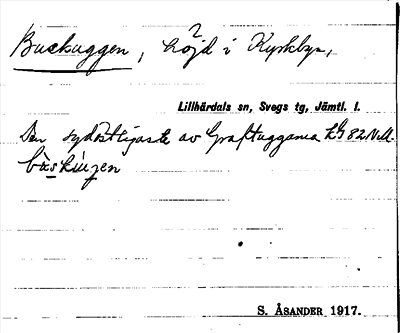 Buckuggen, höjd i Kyrkbyn,
Lillhärdals sn, Svegs tg, Jämtl. l.
Den sydöstligaste av Graftuggarna kbl 82 N.v.M.
S. ÅSANDER 1917.